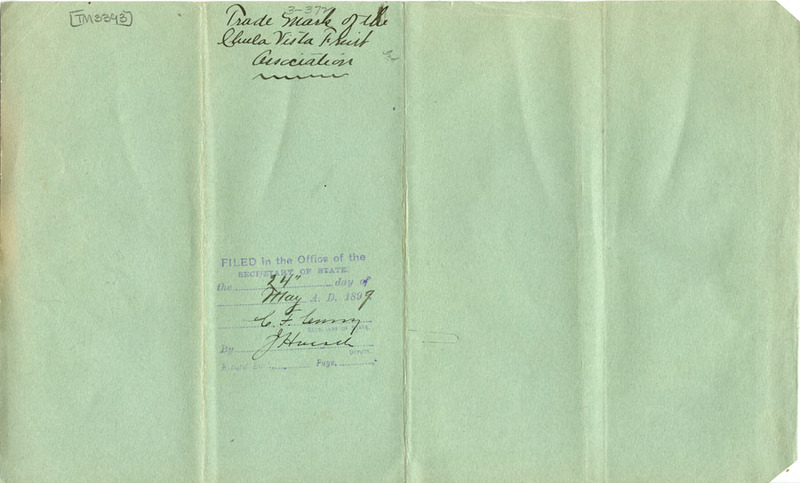 [TM3343]
3-372
Trade Mark of the
Chula Vista Fruit
Association
FILED in the Office of the
SECRETARY OF STATE.
the 24" day of
May A. D. 1899
C. F. Curry
SECRETARY OF STATE.
By J Hoesch
DEPUTY.
Page,